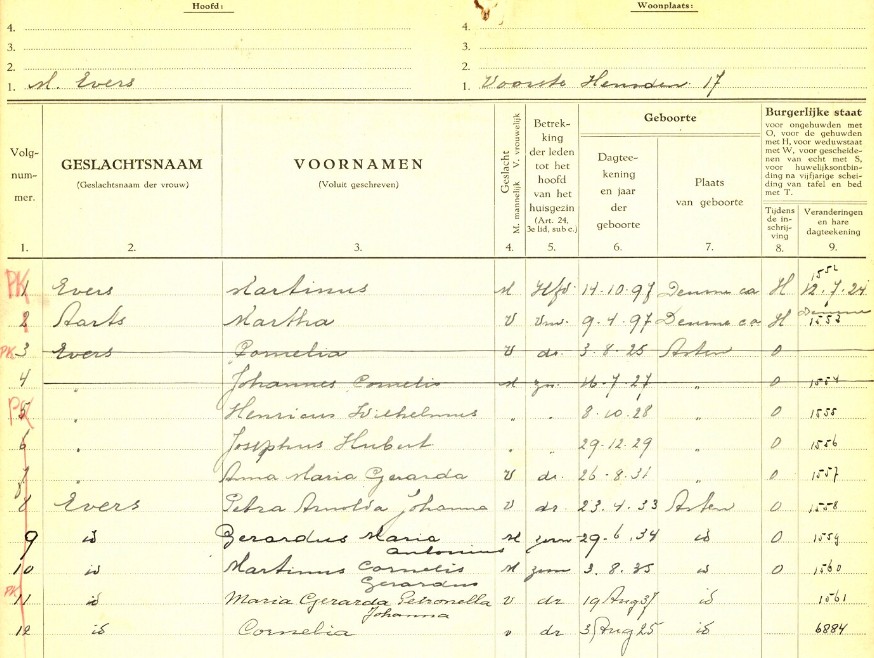 Hoofd: Woonplaats:
4. 4.
3. 3.
2. 2.
1. M. Evers 1. Voorste Heusden 17
Volg-
num-
mer.
GESLACHTSNAAM
(Geslachtsnaam der vrouw)
VOORNAMEN
(Voluit geschreven)
Geslacht
M. mannelijk V. vrouwelijk
Betrek-
king
der leden
tot het
hoofd
van het
huisgezin
(Art. 24,
3e lid, sub c.)
Geboorte
Dagtee-
kening
en jaar
der
geboorte
Plaats
van geboorte
Burgerlijke staat
voor ongehuwden met
O, voor de gehuwden
met H, voor weduwstaat
met W, voor gescheide-
nen van echt met S,
voor huwelijksontbin-
ding na vijfjarige schei-
ding van tafel en bed
met T.
Tijdens
de in-
schrij-
ving
Veranderingen
en hare
dagteekening
1. 2. 3. 4. 5. 6. 7. 8. 9.
PK 1 Evers Martinus M Hfd. 14-10-97 Deurne ca H 1552 12.7.24 Deurne
2 Aarts Martha V Vrw. 9-4-97 Deurne ca H 1553
PK 3 Evers Cornelia V dr. 3-8-25 Asten O
4 " Johannes Cornelis M zn. 16-7-27 " O 1554
PK 5 " Henricus Wilhelmus " " 8-10-28 " O 1555
6 " Josephus Hubert " " 29-12-29 " O 1556
7 " Anna Maria Gerarda V dr. 26-8-31 " O 1557
8 Evers Petra Arnolda Johanna V dr. 23.4.33 Asten O 1558
9 id Gerardus Maria M zoon 29-6.34 id O 1559
Antonius
10 id Martinus Cornelis M zoon 3.8.35 id O 1560
Gerardus
PK 11 id Maria Gerarda Petronella V dr 19 Aug 37 id 1561
Johanna
12 id Cornelia V dr 3 Aug 25 id 6884